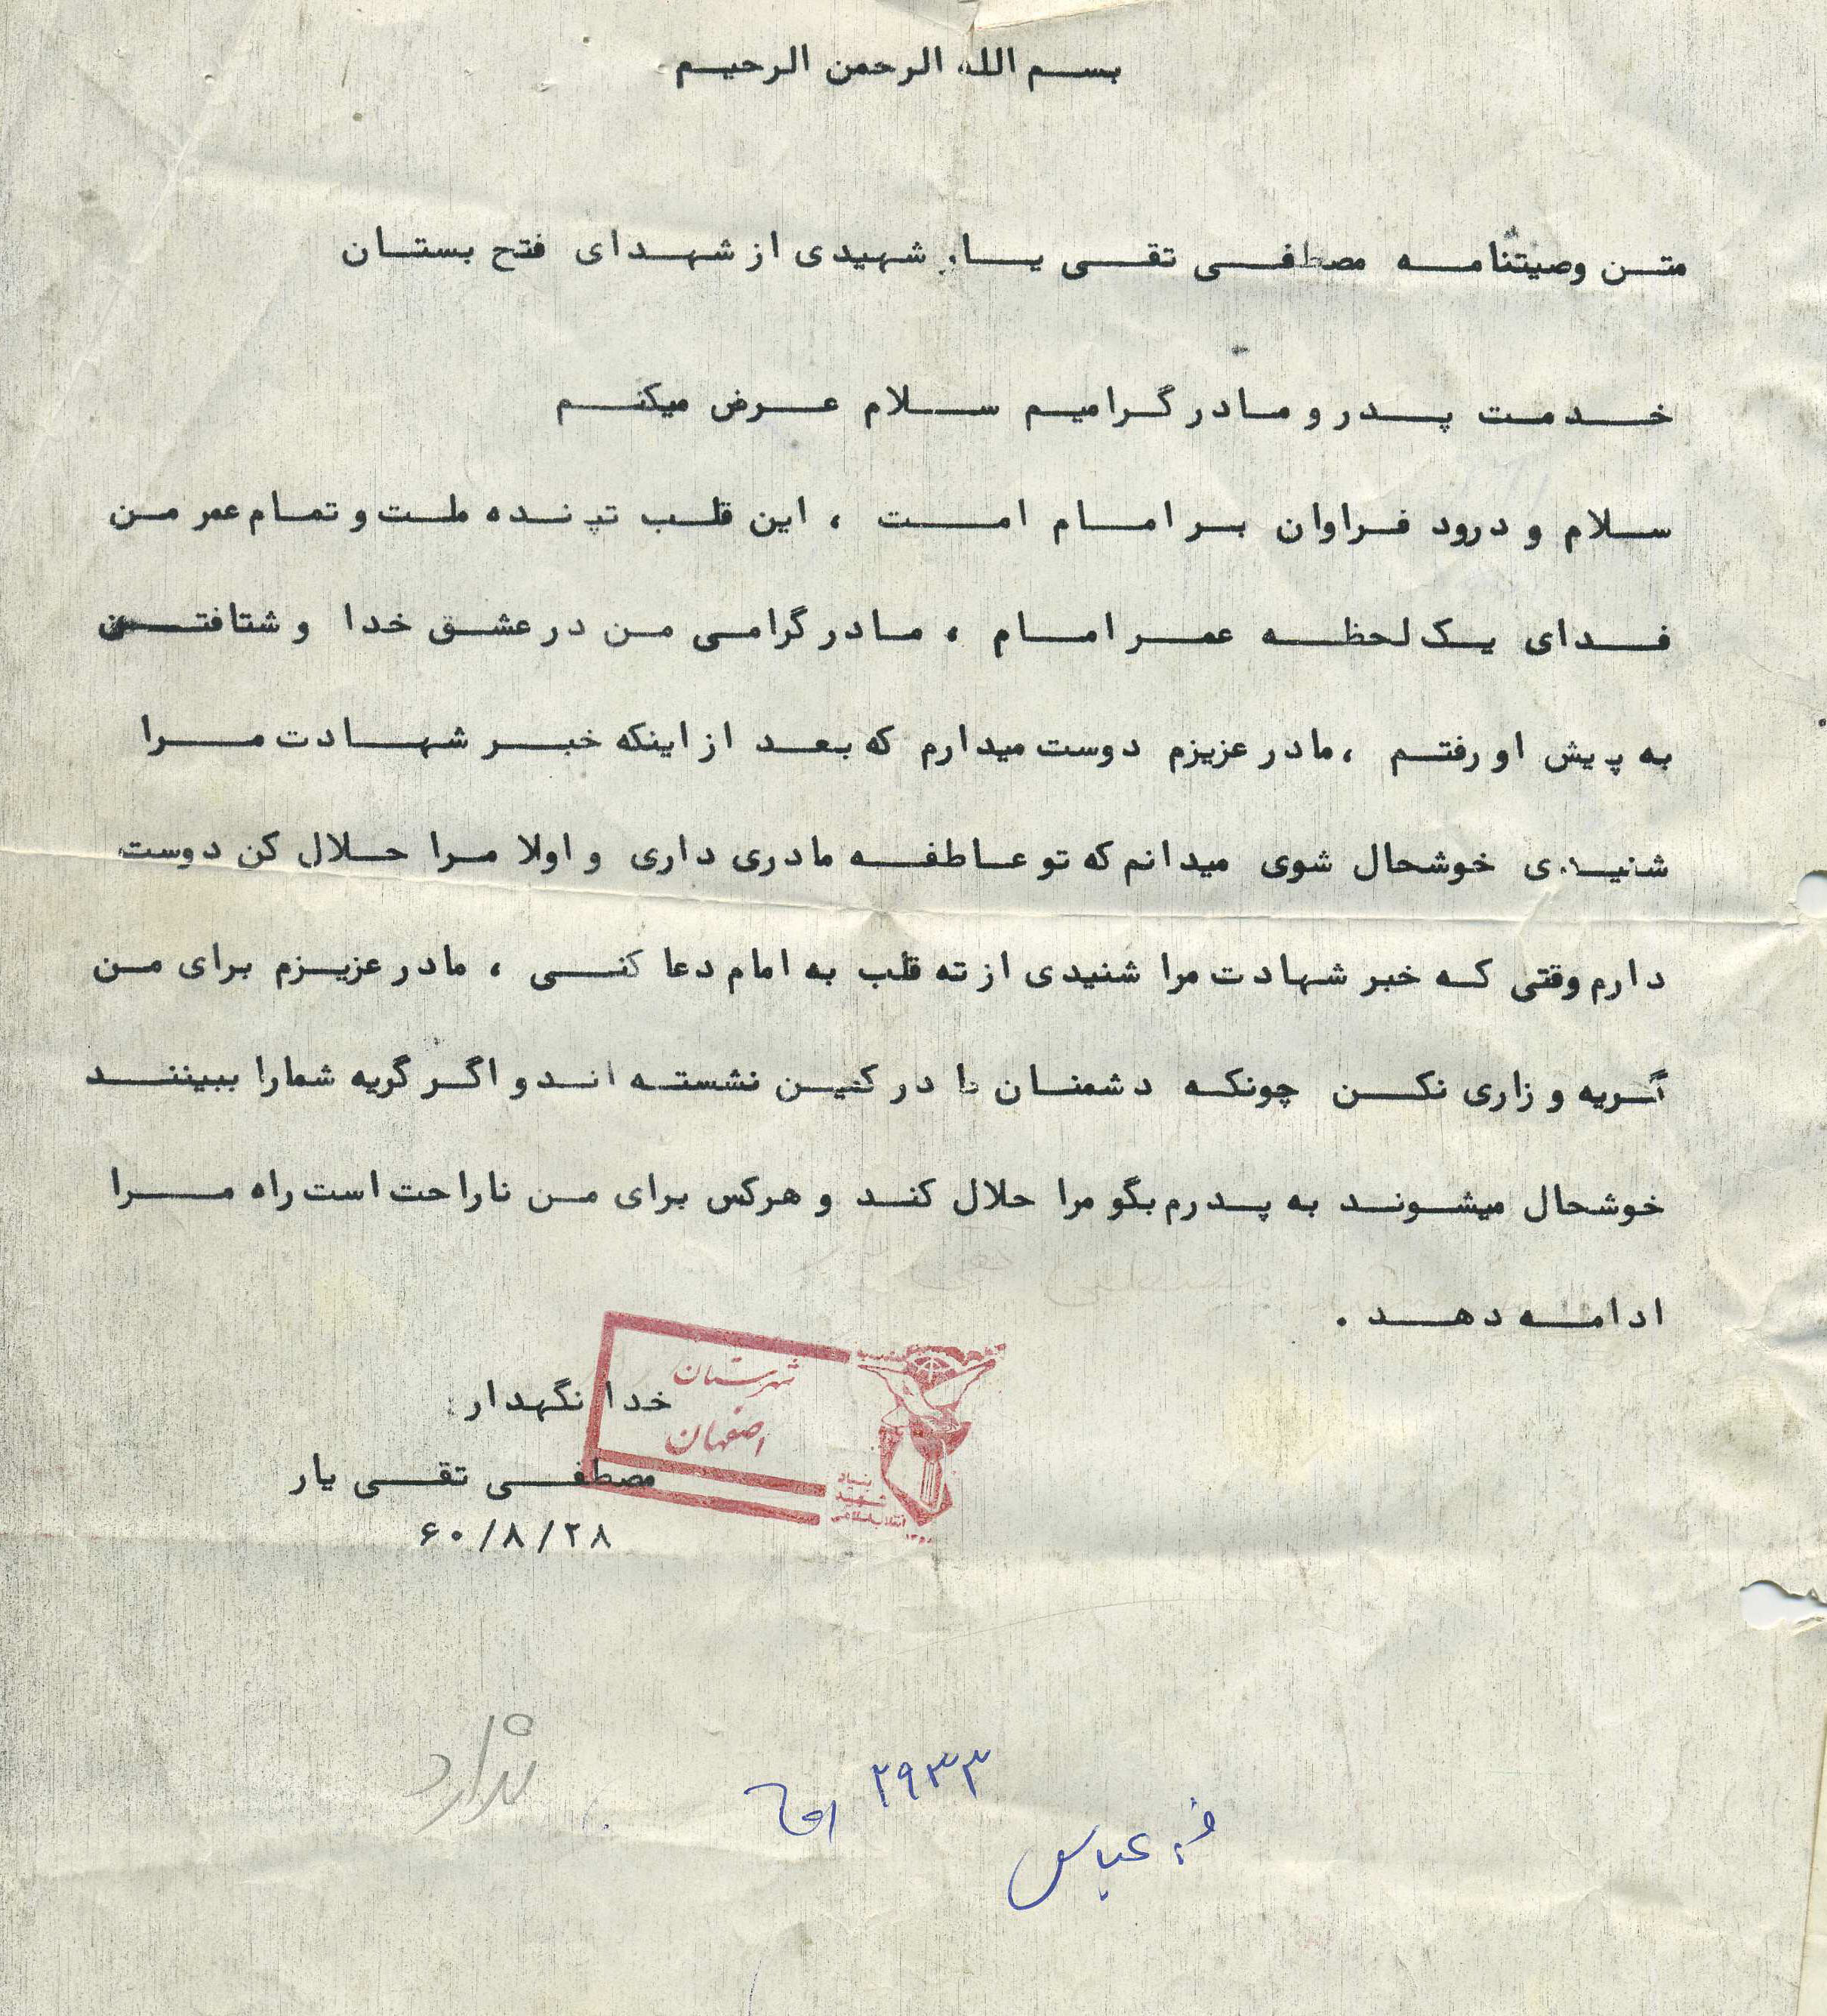 بسم الله الرحمن الرحیم
متن وصیتنامه مصطفی تقی یار شهیدی از شهدای فتح بستان
خدمت پدر و مادر گرامیم سلام عرض میکنم
سلام و درود فراوان بر امام امت ، این قلب تپنده ملت و تمام عمر من
فدای یک لحظه عمر امام ، مادر گرامی من در عشق خدا و شتافتن
به پیش او رفتم ، مادر عزیزم دوست میدارم که بعد از اینکه خبر شهادت مرا
شنیدی خوشحال شوی میدانم که تو عاطفه مادری داری و اولا مرا حلال کن دوست
دارم وقتی که خبر شهادت مرا شنیدی از ته قلب به امام دعا کنی ، مادر عزیزم برای من
گریه و زاری نکن چونکه دشمنان ما در کمین نشسته اند و اگر گریه شمارا ببینند
خوشحال میشوند به پدرم بگو مرا حلال کند و هرکس برای من ناراحت است راه مرا
ادامه دهد .
خدا نگهدار
مصطفی تقی یار
۶۰/۸/۲۸
شهرستان
اصفهان
بنیاد
شهید
انقلاب اسلامی
۲۹۳۳
عباس
ندارد